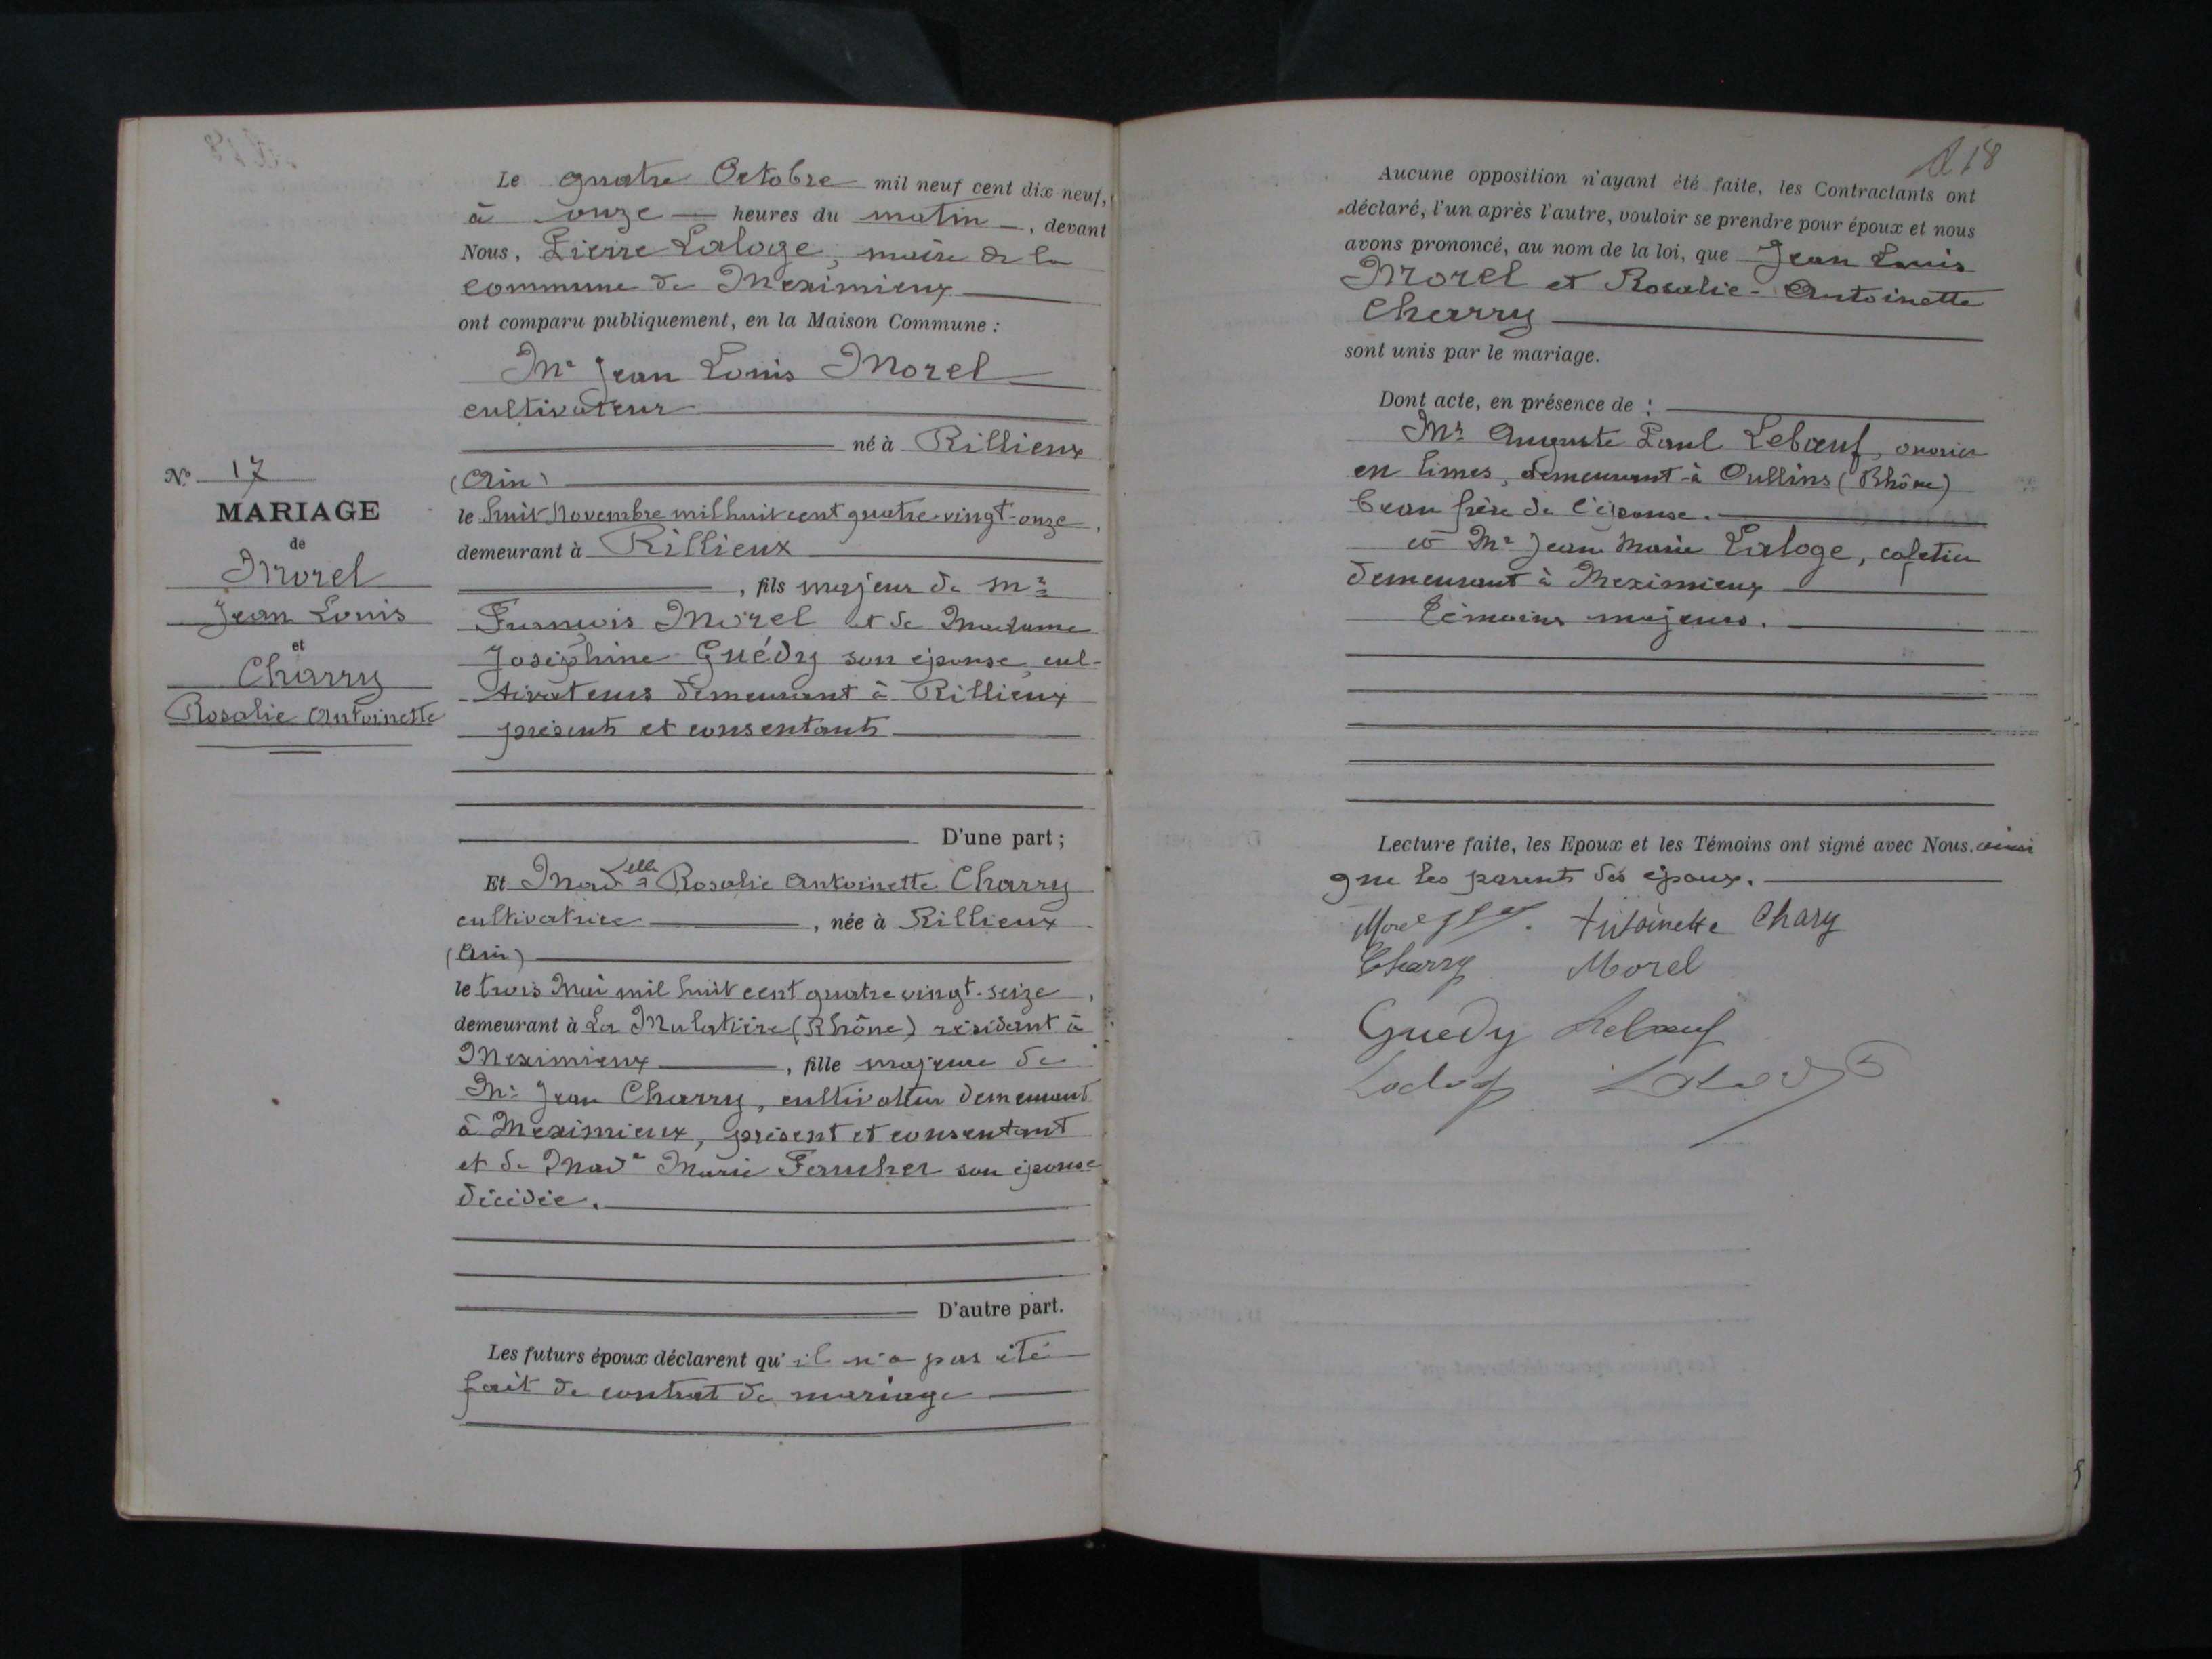 Le quatre Octobre mil neuf cent dix neuf,
à onze heures du matin, devant
Nous, Pierre Laloge, maire de la
commune de Meximieux
ont comparu publiquement, en la Maison Commune :
Mr Jean Louis Morel
cultivateur
né à Rillieux
(Ain)
le huit Novembre mil huit cent quatre-vingt-onze,
demeurant à Rillieux
, fils majeur de Mr
François Morel et de Madame
Joséphine Guédy son épouse, cul-
tivateurs demeurant à Rillieux
présents et consentants
D'une part ;
N° 17
MARIAGE
de
Morel
Jean Louis
et
Charry
Rosalie Antoinette
Et Madelle Rosalie Antoinette Charry
cultivatrice, née à Rillieux
(Ain)
le trois Mai mil huit cent quatre vingt-seize,
demeurant à La Mulatière (Rhône) résidant à
Meximieux, fille majeure de
Mr Jean Charry, cultivateur demeurant
à Meximieux, présent et consentant
et de Made Marie Faucher son épouse
décédée.
D'autre part.
Les futurs époux déclarent qu'il n'a pas été
fait de contrat de mariage
18
Aucune opposition n'ayant été faite, les Contractants ont
déclaré, l'un après l'autre, vouloir se prendre pour époux et nous
avons prononcé, au nom de la loi, que Jean Louis
Morel et Rosalie-Antoinette
Charry
sont unis par le mariage.
Dont acte, en présence de :
Mr Auguste Paul Lebœuf, ouvrier
en limes, demeurant à Oullins (Rhône)
beau frère de l'épouse.
et Mr Jean Marie Laloge, cafetier
demeurant à Meximieux
témoins majeurs.
Lecture faite, les Epoux et les Témoins ont signé avec Nous. ainsi
que les parents des époux.
Morel Antoinette Chary
Charry Morel
Guedy Lebœuf